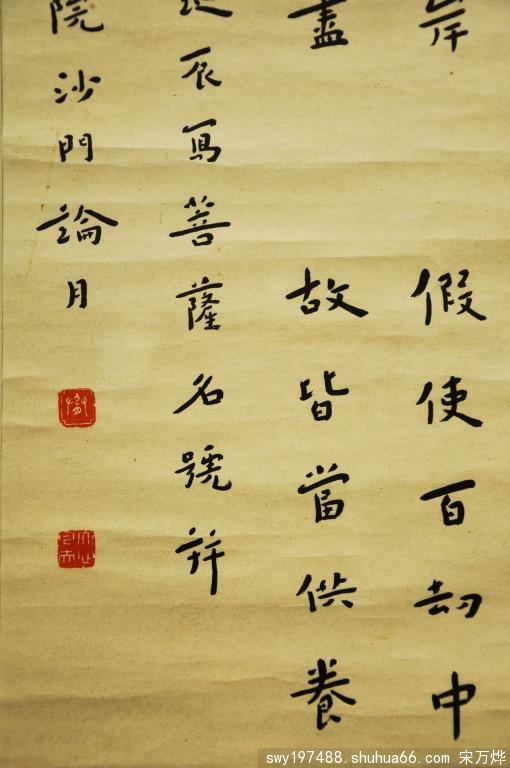 岸
假使百劫中
盡
故皆當供養
辰寫菩薩名號并
院沙門論月
swy197488.shuhua66.com 宋万烨